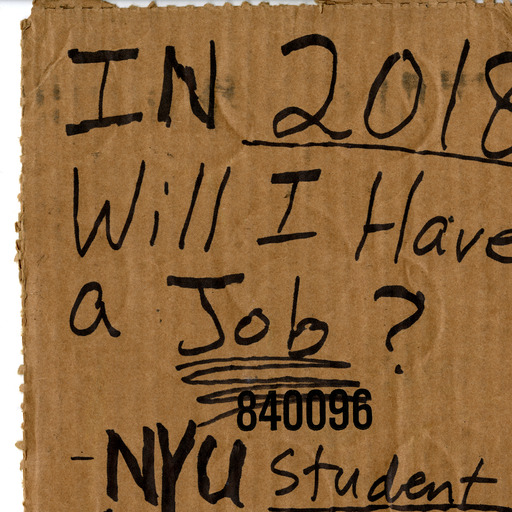 IN 2018
Will I Have
a Job?
840096
-NYU Student